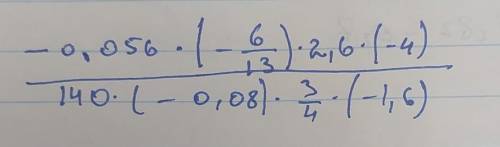 -0,056 · (- 6/13) · 2,6 · (-4)
140 · (- 0,08) · 3/4 · (-1,6)